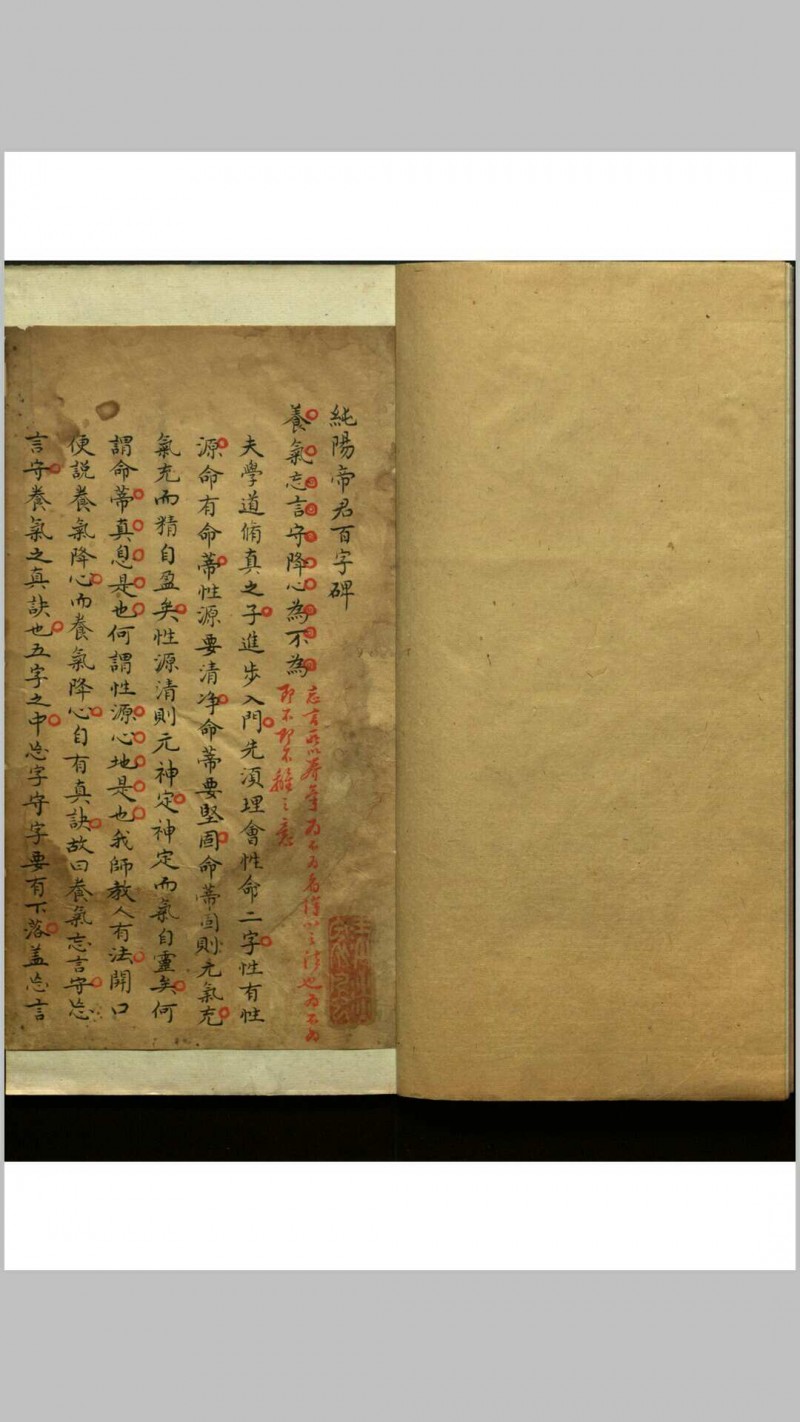 純陽帝君百字碑
養氣忘言守降心為不為
忘言所以養氣為不為者降心之訣也為不為
即不即不離之意
夫學道脩真之子進步入門先須理會性命二字性有性
源命有命蒂性源要清净命蒂要堅固命蒂固則元氣充
氣充而精自盈矣性源清則元神定神定而氣自靈矣何
謂命蒂真息是也何謂性源心地是也我師教人有法開口
便説養氣降心而養氣降心自有真訣故曰養氣忘言守忘
言守養氣之真訣也五字之中忘字守字要有下落盖忘言